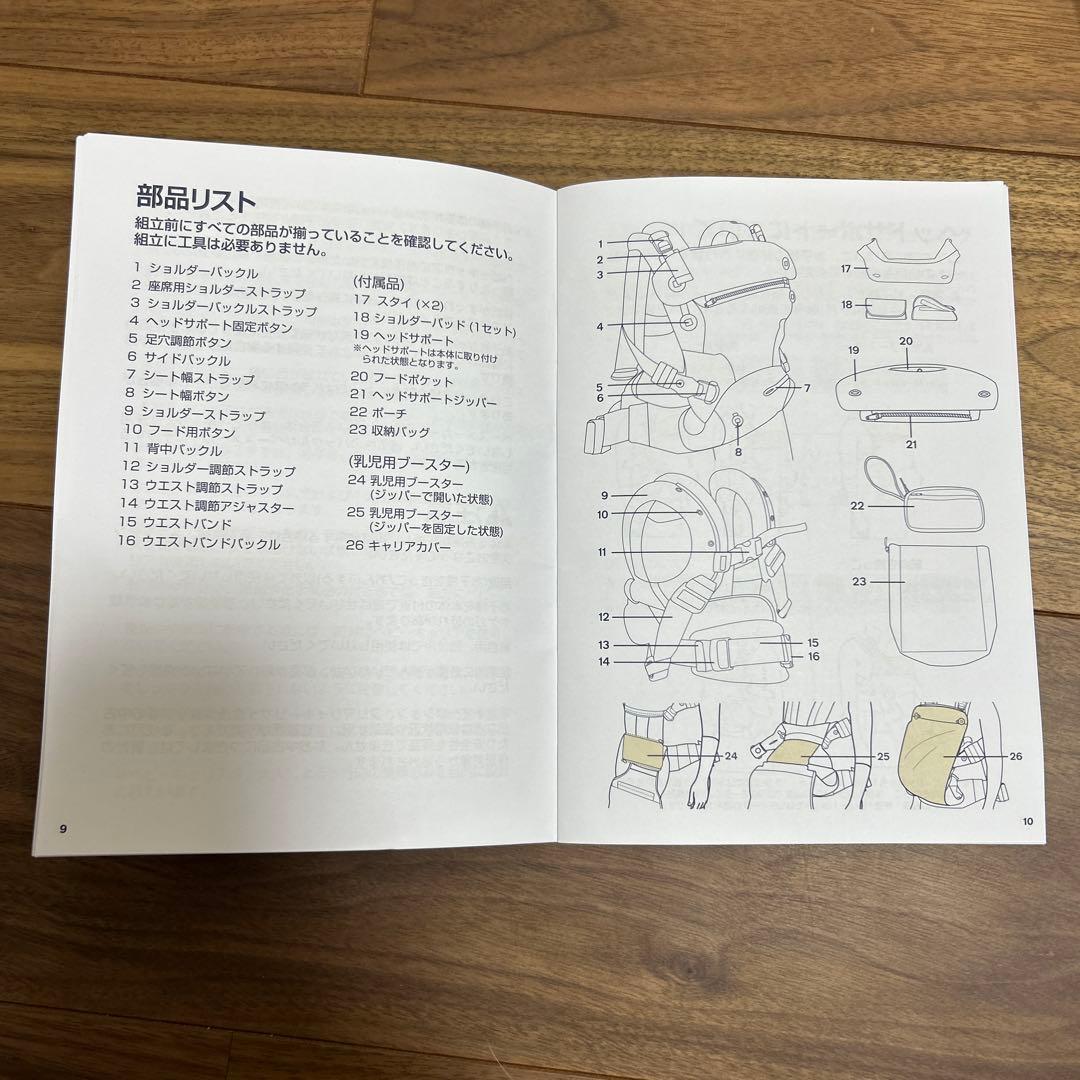 部品リスト
組立前にすべての部品が揃っていることを確認してください。
組立に工具は必要ありません。
1 ショルダーバックル
2 座席用ショルダーストラップ
3 ショルダーバックルストラップ
4 ヘッドサポート固定ボタン
5 足穴調節ボタン
6 サイドバックル
7 シート幅ストラップ
8 シート幅ボタン
9 ショルダーストラップ
10 フード用ボタン
11 背中バックル
12 ショルダー調節ストラップ
13 ウエスト調節ストラップ
14 ウエスト調節アジャスター
15 ウエストバンド
16 ウエストバンドバックル
(付属品)
17 スタイ (×2)
18 ショルダーパッド (1セット)
19 ヘッドサポート
※ヘッドサポートは本体に取り付け
られた状態となります。
20 フードポケット
21 ヘッドサポートジッパー
22 ポーチ
23 収納バッグ
(乳児用ブースター)
24 乳児用ブースター
(ジッパーで開いた状態)
25 乳児用ブースター
(ジッパーを固定した状態)
26 キャリアカバー
9
1
2
3
4
5
6
7
8
9
10
11
12
13
14
15
16
17
18
19
20
21
22
23
24
25
26
10